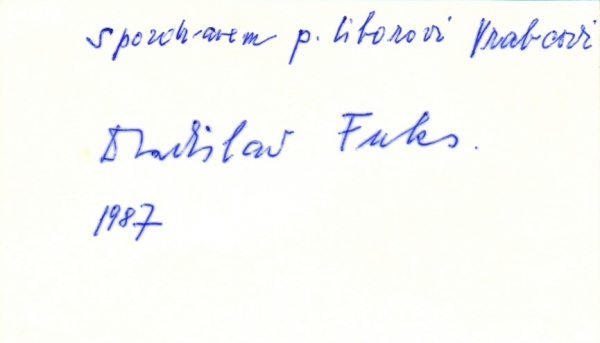 s pozdravem p. Liborovi Vrabcovi
Ladislav Fuks.
1987